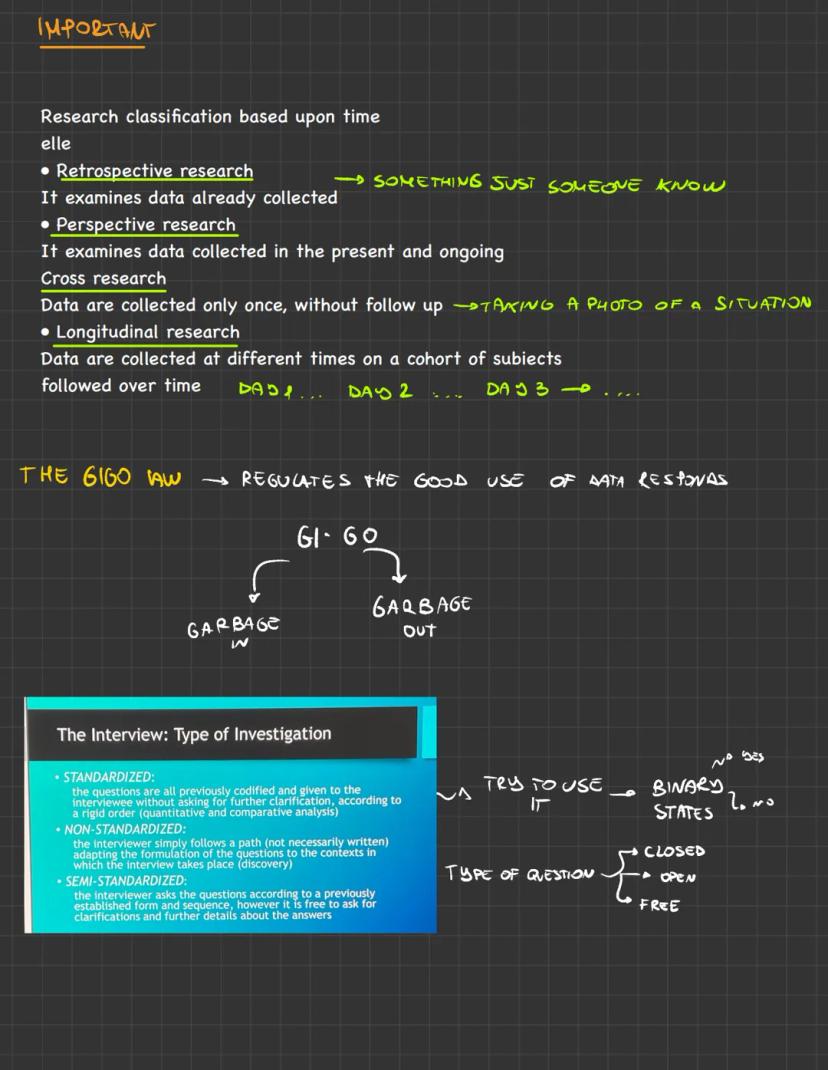 IMPORTANT
Research classification based upon time
elle
• Retrospective research
→ SOMETHING JUST SOMEONE KNOW
It examines data already collected
• Perspective research
It examines data collected in the present and ongoing
Cross research
Data are collected only once, without follow up → TAKING A PHOTO OF A SITUATION
• Longitudinal research
Data are collected at different times on a cohort of subiects
followed over time DAY 1 ... DAY 2 .... DAY 3 → ....
THE GIGO LAW → REGULATES THE GOOD USE OF DATA
GI · GO
GARBAGE IN
GARBAGE OUT
The Interview: Type of Investigation
• STANDARDIZED:
the questions are all previously codified and given to the
interviewee without asking for further clarification, according to
a rigid order (quantitative and comparative analysis)
• NON-STANDARDIZED:
the interviewer simply follows a path (not necessarily written)
adapting the formulation of the questions to the contexts in
which the interview takes place (discovery)
• SEMI-STANDARDIZED:
the interviewer asks the questions according to a previously
established form and sequence, however it is free to ask for
clarifications and further details about the answers
TRY TO USE IT → BINARY STATES
YES
NO
TYPE OF QUESTION
→ CLOSED
→ OPEN
→ FREE